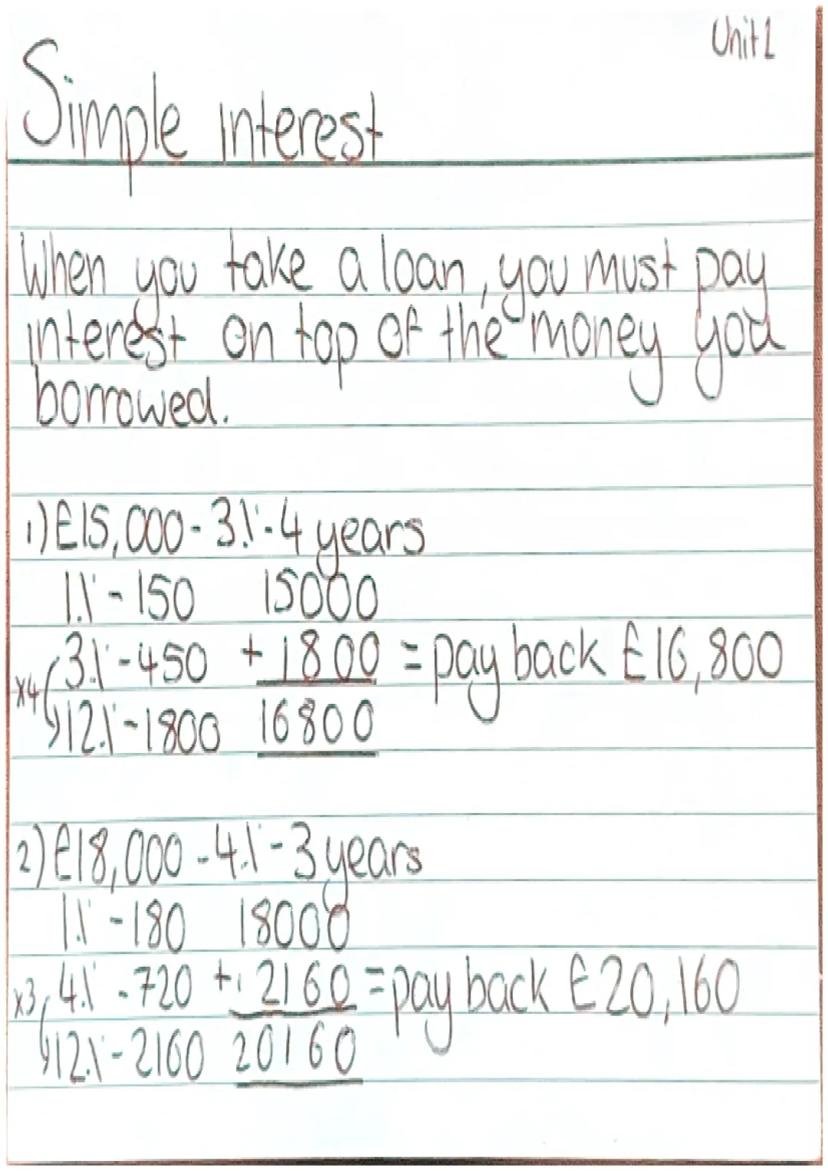 Unit 1
Simple interest
When you take a loan, you must pay
interest on top of the money you
borrowed.
1) £15,000 - 3% - 4 years
1% - 150 15000
3% - 450 + 1800 = pay back £16,800
x4
12% - 1800 16800
2) £18,000 - 4% - 3 years
1% - 180 18000
x3 4% - 720 + 2160 = pay back £20,160
12% - 2160 20160